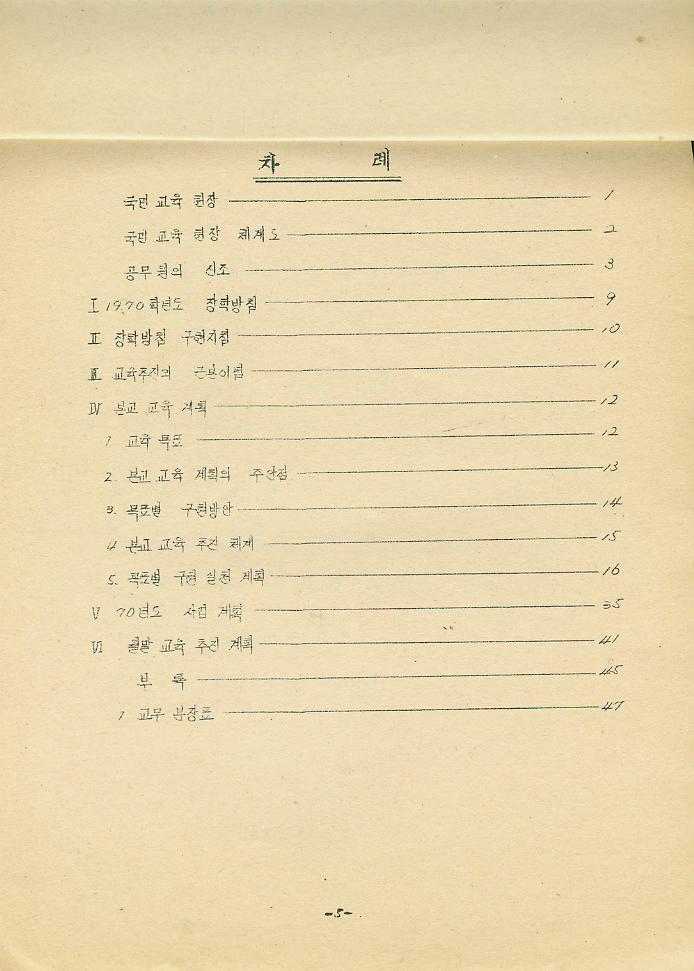 차 례
국민 교육 헌장 1
국민 교육 헌장 체계도 2
공무원의 신조 3
I 1970학년도 장학방침 9
II 장학방침 구현지침 10
III 교육추진의 근본이념 11
IV 본교 교육 계획 12
1 교육 목표 12
2. 본교 교육 계획의 주안점 13
3. 목표별 구현방안 14
4 본교 교육 추진 체계 15
5. 목표별 구현 실천 계획 16
V 70년도 사업 계획 35
VI 월말 교육 추진 계획 41
부 록 45
1 교무 분장표 47
-5-